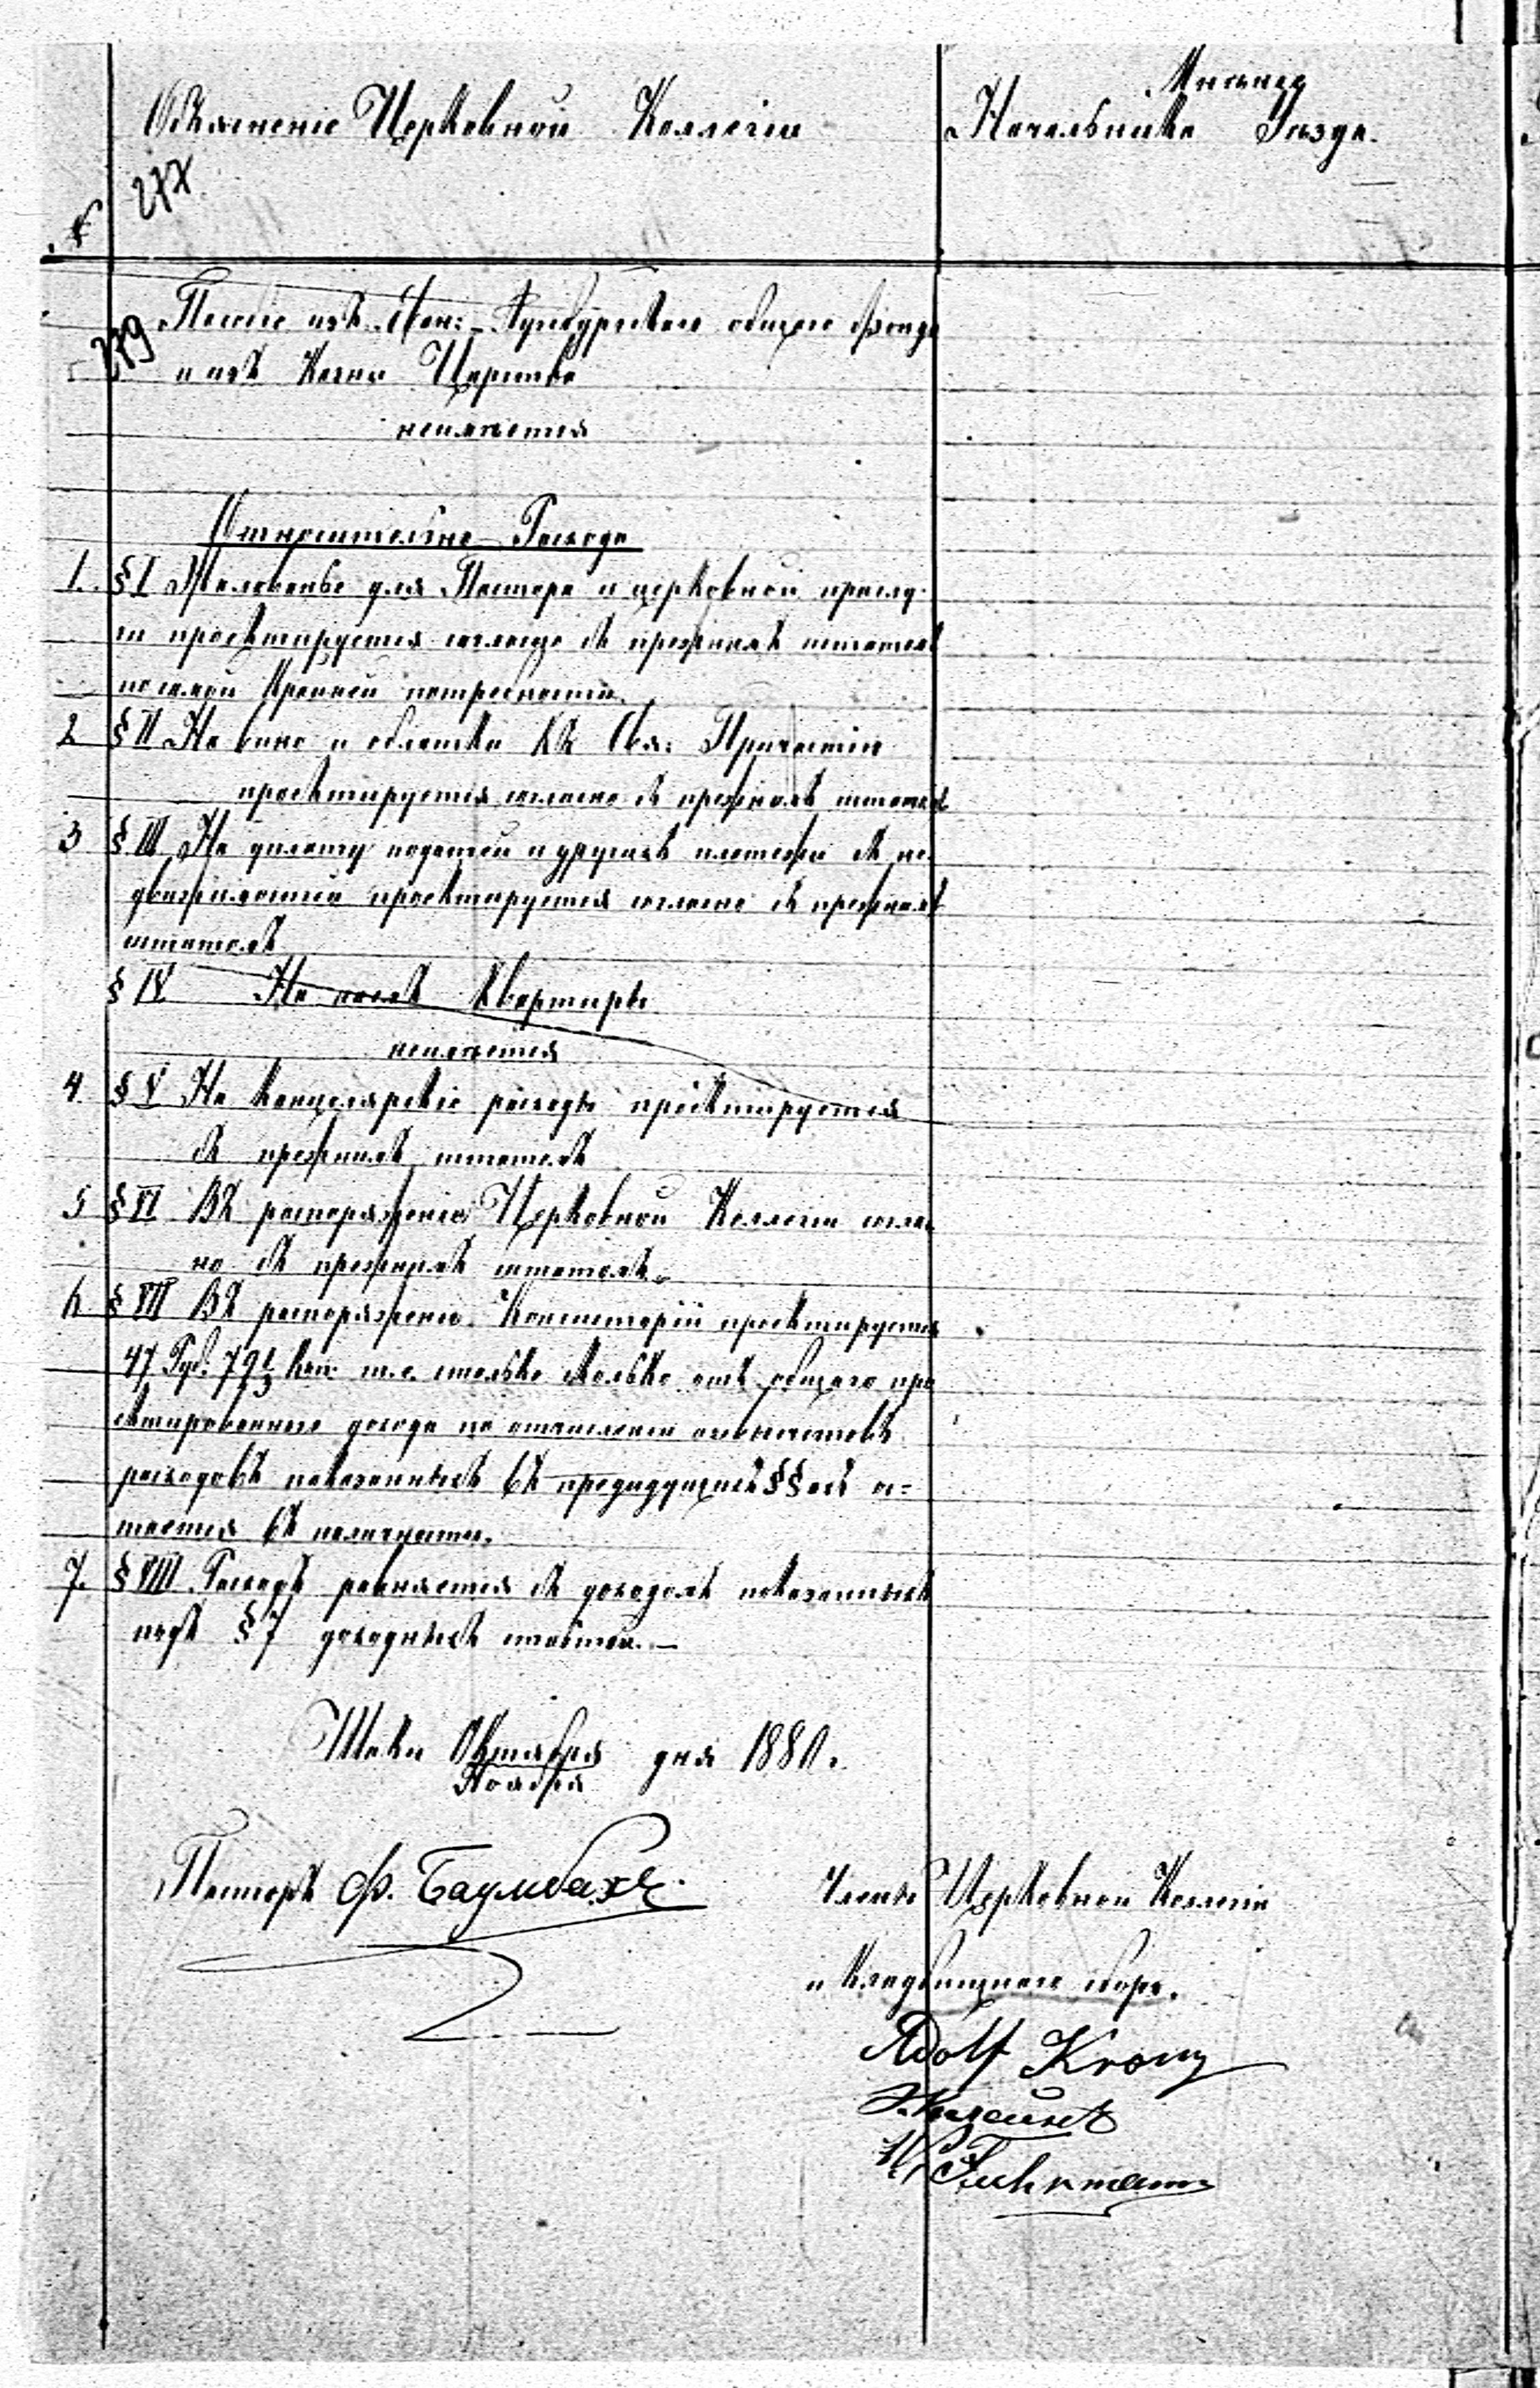 Объясненіе Церковной Коллегіи
Мнѣніе
Начальника Уѣзда.
№
277
279
Пособіе изъ Еван: Аугсбургскаго общаго фонда
и изъ Казны Царства
неимѣется
Относительно Расхода
1. § I Жалованье для Пастора и церковной прислу-
ги проектируется согласно съ прежнимъ штатомъ
по самой крайней потребности.
2 § II На вино и облатки къ Свя: Причастію
проектируется согласно съ прежнимъ штатомъ
3 § III На уплату податей и другихъ платежей съ не-
движимостей проектируется согласно съ прежнимъ
штатомъ
§ IV На наемъ Квартиры
неимѣется
4 § V На Канцелярскіе расходы проектируется
съ прежнимъ штатомъ
5 § VI Въ распоряженіи Церковной Коллегіи соглас
но съ прежнимъ штатомъ.
6 § VII Въ распоряженіи Консисторіи проектируется
47 Руб. 79½ Коп: т.е. столько сколько отъ общаго про
ектированнаго дохода по отчисленіи
расходовъ показанныхъ въ предидущихъ §§ахъ ос=
тается въ наличности.
7. § VIII Расходъ равняется съ доходомъ показаннымъ
подъ § 7 доходныхъ статей. —
Октября
Ноября дня 1880.
Пасторъ Ф. Баумбахъ.
Члены Церковной Коллегіи
и Кладбищнаго сбора.
Adolf
W. Fuhrmann